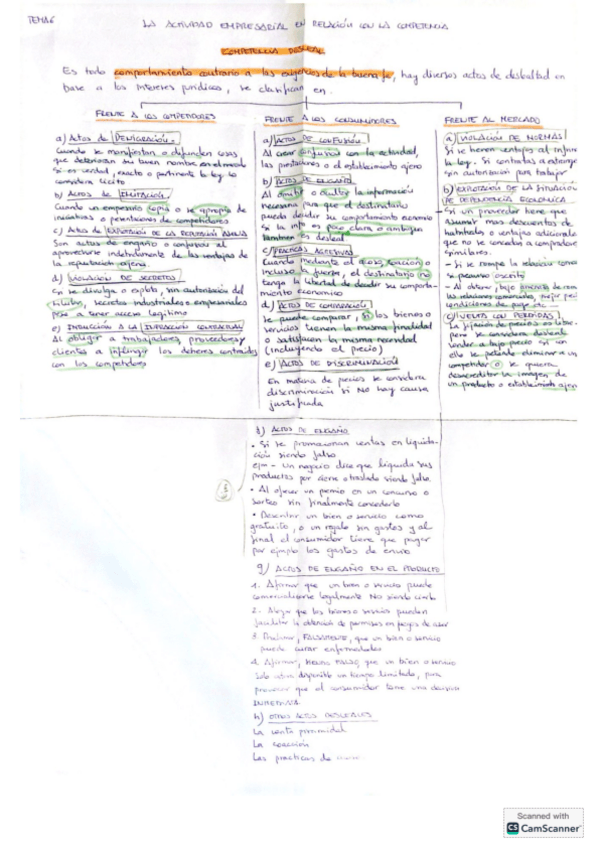 TEMA 6
LA ACTIVIDAD EMPRESARIAL EN RELACIÓN CON LA COMPETENCIA
COMPETENCIA DESLEAL
Es todo comportamiento contrario a las exigencias de la buena fe, hay diversos actos de deslealtad en
base a los intereses jurídicos, se clasifican en.
FRENTE A LOS COMPETIDORES
a) Actos de DENIGRACIÓN.
Cuando se manifiestan o difunden cosas
que deterioran su buen nombre en el mercado
Si es verdad, exacto o pertinente la ley lo
considera lícito
b) ACTOS DE IMITACIÓN
Cuando un empresario copia o se apropia de
iniciativas o prestaciones de competidores
c) Actos de EXPLOTACIÓN DE LA REPUTACIÓN AJENA
Son actos de engaño o confusión al
aprovecharse indebidamente de las ventajas de
la reputación ajena.
d) VIOLACIÓN DE SECRETOS
Se divulga o explota, sin autorización del
titular, secretos industriales o empresariales
pese a tener acceso legítimo
e) INDUCCIÓN A LA INFRACCIÓN CONTRACTUAL
Al obligar a trabajadores, proveedores y
clientes a infringir los deberes contraidos
con los competidores
FRENTE A LOS CONSUMIDORES
a) ACTOS DE CONFUSIÓN.
Al crear confusión con la actividad,
las prestaciones o el establecimiento ajeno
b) ACTOS DE ENGAÑO
Al omitir o ocultar la información
necesaria para que el destinatario
pueda decidir su comportamiento economico
Si la info es poco clara o ambigua
tambien es desleal
c) PRÁCTICAS AGRESIVAS
Cuando mediante el acoso, coacción o
incluso la fuerza, el destinatario no
tenga la libertad de decidir su comporta-
miento economico
d) ACTOS DE COMPARACIÓN
Se puede comparar, si los bienes o
servicios tienen la misma finalidad
o satisfacen la misma necesidad
(incluyendo el precio)
e) ACTOS DE DISCRIMINACIÓN
En materia de precios se considera
discriminación si NO hay causa
justificada
FRENTE AL MERCADO
a) VIOLACIÓN DE NORMAS
Si se tienen ventajas al infringir
la ley. Si contratas a extranje
sin autorización para trabajar
b) EXPLOTACIÓN DE LA SITUACIÓN
DE DEPENDENCIA ECONÓMICA
- Si un proveedor tiene que
asumir mas descuentos de
habituales o ventajas adicionale
que no se conceden a compradores
similares.
- Si se rompe la relación
preaviso escrito
- Al obtener, bajo amenaza de romp
las relaciones comerciales, mejor
condiciones de pago etc...
c) VENTA CON PÉRDIDAS
La fijación de precios es libre,
pero se considera desleal
vender a bajo precio si con
ello se pretende eliminar a un
competidor o se quiera
desacreditar la imagen de
un producto o establecimiento ajeno
f) ACTOS DE ENGAÑO
• Si se promocionan ventas en liquida-
ción siendo falso
ejm - Un negocio dice que liquida sus
productos por cierre o traslado siendo falso
• Al ofrecer un premio en un concurso o
sorteo sin finalmente concederlo
• Describir un bien o servicio como
gratuito, o un regalo sin gastos y al
final el consumidor tiene que pagar
por ejemplo los gastos de envío
g) ACTOS DE ENGAÑO EN EL PRODUCTO
1. Afirmar que un bien o servicio puede
comercializarse legalmente NO siendo cierto
2. Alegar que los bienes o servicios pueden
facilitar la obtención de premios en juegos de azar
3. Proclamar, FALSAMENTE, que un bien o servicio
puede curar enfermedades
4. Afirmar, que un bien o servicio
solo estará disponible un tiempo limitado, para
provocar que el consumidor tome una decisión
h) OTROS ACTOS DESLEALES
La venta piramidal
La coacción
Las practicas de
Scanned with
CS CamScanner